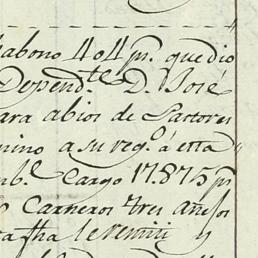 abono 404 ps. que dio
Depend.te D. José
ara abios de Pastores
mino a su reg.o á esta
mb.e Cargo 17.875 ps
Carneros tres añejos
ta fha le remiti y